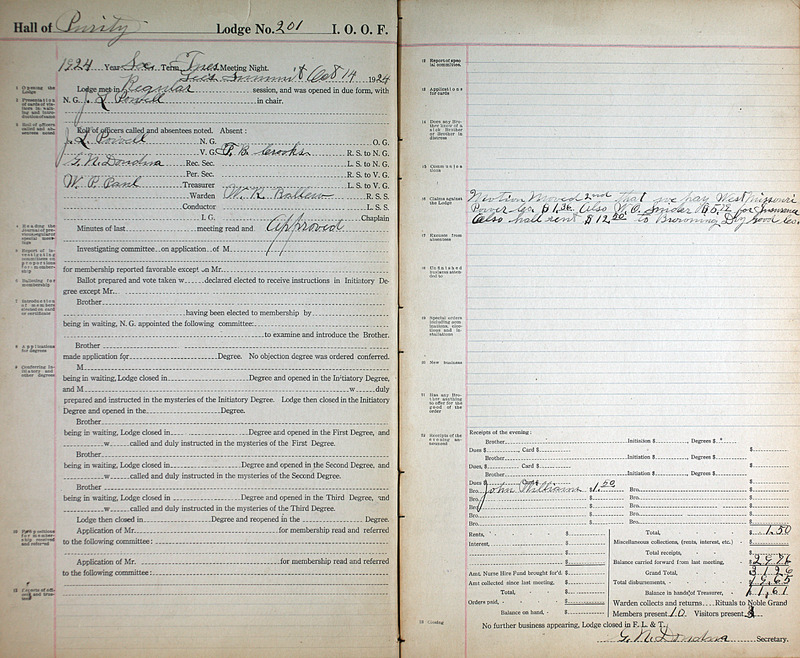 Hall of Purity Lodge No. 201 I. O. O. F.
1924 Year Sec. Term, Tues Meeting Night.
Lee's Summit Oct 14 1924
Lodge met in Regular session, and was opened in due form, with
N. G. J. L. Powell in chair.
Roll of officers called and absentees noted. Absent:
J. L. Powell N. G. O. G.
V. G. F. B. Crooks R. S. to N. G.
G. N. Donahue Rec. Sec. L. S. to N. G.
Per. Sec. R. S. to V. G.
W. P. Treasurer L. S. to V. G.
Warden W. K. Ballew R. S. S.
Conductor L. S. S.
I. G. Chaplain
Minutes of last meeting read and Approved
Investigating committee on application of M
for membership reported favorable except on Mr.
Ballot prepared and vote taken w declared elected to receive instructions in Initiatory De-
gree except Mr.
Brother
having been elected to membership by
being in waiting, N. G. appointed the following committee:
to examine and introduce the Brother.
Brother
made application for Degree. No objection degree was ordered conferred.
M
being in waiting, Lodge closed in Degree and opened in the Initiatory Degree,
and M w duly
prepared and instructed in the mysteries of the Initiatory Degree. Lodge then closed in the Initiatory
Degree and opened in the Degree.
Brother
being in waiting, Lodge closed in Degree and opened in the First Degree, and
w called and duly instructed in the mysteries of the First Degree.
Brother
being in waiting, Lodge closed in Degree and opened in the Second Degree, and
w called and duly instructed in the mysteries of the Second Degree.
Brother
being in waiting, Lodge closed in Degree and opened in the Third Degree, and
w called and duly instructed in the mysteries of the Third Degree.
Lodge then closed in Degree and reopened in the Degree.
Application of Mr. for membership read and referred
to the following committee:
Application of Mr. for membership read and referred
to the following committee:
1 Opening the Lodge
12 Report of special committees
13 Applications for cards
14 Does any Brother know of a sick Brother or Brother in distress
15 Communications
16 Claims against the Lodge
Motion Moved 2nd that we pay West Missouri
Power Co $1.36 Also W. O. Snider for Insurance
Also hall rent $12.50 to Browning Dry Good Co.
17 Excuse from absentees
18 Unfinished business attended to
19 Special orders including nominations, elections and installations
20 New business
21 Has any Brother anything to offer for the good of the order
22 Receipts of the evening announced
Receipts of the evening:
Brother Initiation $ , Degrees $ $
Dues $ , Card $
Brother Initiation $ , Degrees $ $
Dues, $ Card $
Brother Initiation $ , Degrees $ $
Dues $ Card $
Bro. John Williams 1.50 Bro. $
Bro. Bro. $
Bro. Bro. $
Bro. Bro. $
Bro. Bro. $
Rents, $ Total, $ 1.50
Interest, $ Miscellaneous collections, (rents, interest, etc.) $
$ Total receipts, $
$ Balance carried forward from last meeting, $ 29.76
Amt. Nurse Hire Fund brought for'd. $ Grand Total, $ 31.26
Amt collected since last meeting, $ Total disbursements, $ 19.65
Total, $ Balance in hands of Treasurer, $ 11.61
Orders paid, $ Warden collects and returns Rituals to Noble Grand
Balance on hand, $ Members present 10 Visitors present
23 Closing
No further business appearing, Lodge closed in F. L. & T.
G. N. Donahue Secretary.